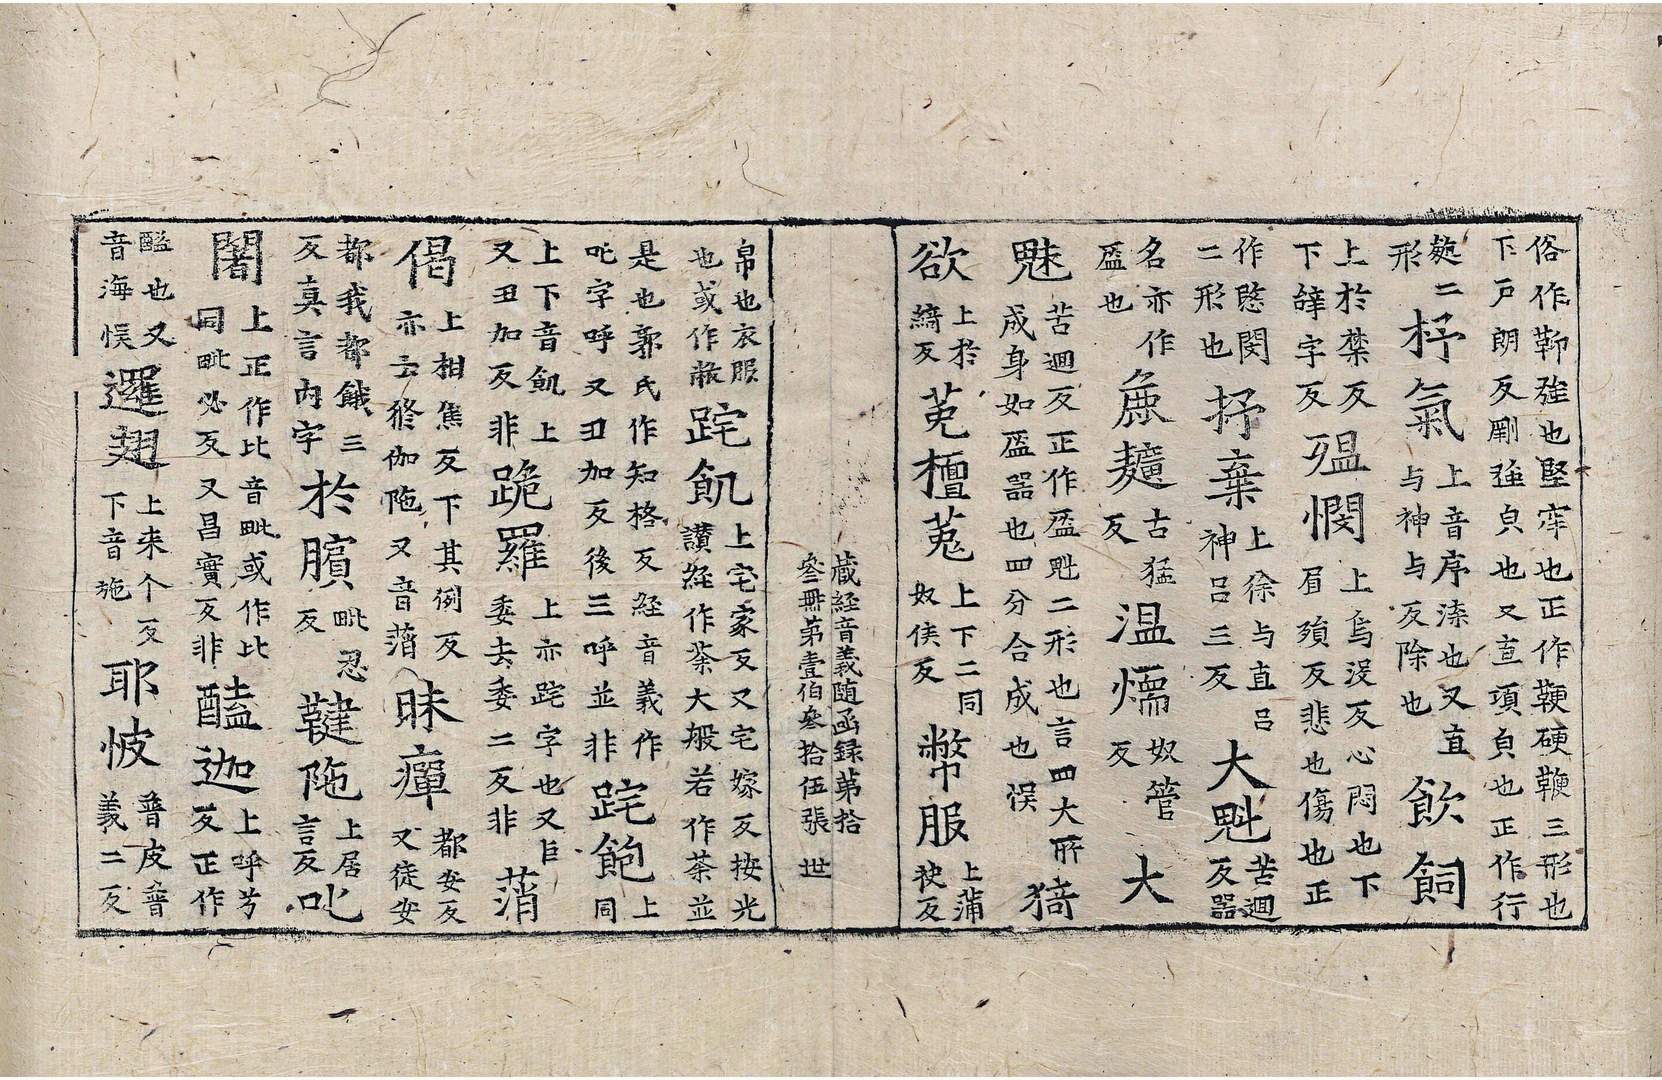 俗作鞕強也堅牢也正作鞕硬鞭三形也
下戶朗反剛強皃也又直項皃也正作行
二形 杼氣 上音序渿也又直与神与反除也 飲飼
上於禁反 下辝字反 殟憫 上烏沒反心悶也下眉殞反悲也傷也正
作愍閔二形也 抒棄 上徐与直呂神呂三反 大魁 苦迴反器
名亦作盔也 麁䵃 古猛反 温㷎 奴管反 大
魁 苦迴反正作盔䰎二形也言四大所成身如盔器也四分合成也悮 猗
欲 上於綺反 莬檀菟 上下二同奴侯反 幣服 上蒲袂反
藏経音義随函録第拾
叄冊第壹伯叄拾伍張 世
帛也衣服也或作敝 詫飢 上宅家反又宅嫁反按光讃経作荼大般若作茶並
是也郭氏作知格反経音義作上吒字呼又丑加反後三呼並非 詫飽 同
上下音飢上又丑加反非 跪羅 上亦詫字也又巨委去委二反非 䔥
偈 上相焦反下其例反亦云修伽陁又音蕱 昧癉 都安反又徒安
都我都餓三反真言內字 於臏 毗忍反 鞬陁 上居言反 叱
闍 上正作比音毗或作比同毗必反又昌實反非 醘迦 上呼兮反正作
醯也又音海悮 邏翅 上来个反下音施 耶帔 普皮普義二反